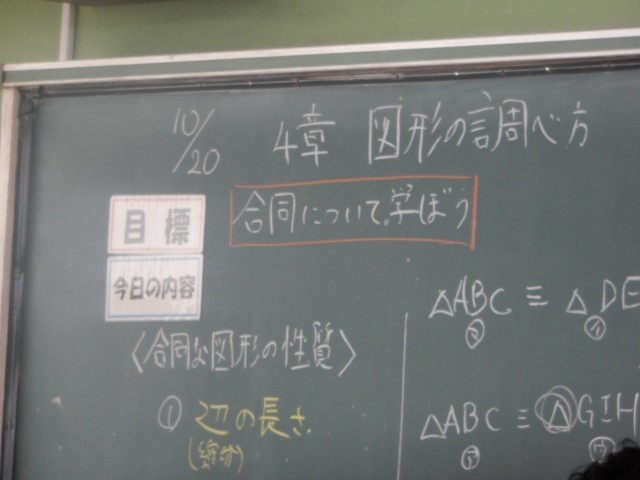 10/20 4章 図形の調べ方
目標
合同について学ぼう
今日の内容
〈合同な図形の性質〉
① 辺の長さ
(線分)
△ABC ≡ △DE
△ABC ≡ △GIH
㋐